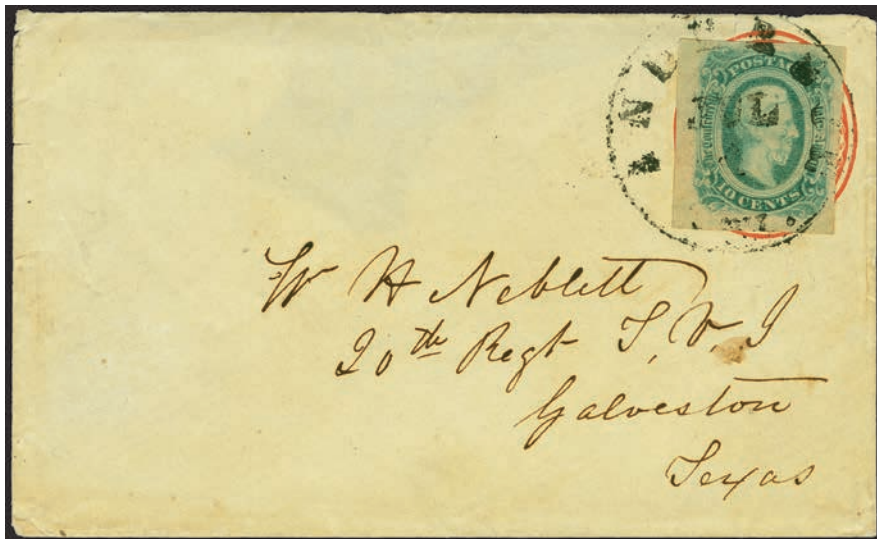 POSTAGE
10 CENTS
W H Neblett
20th Regt T. V. I
Galveston
Texas